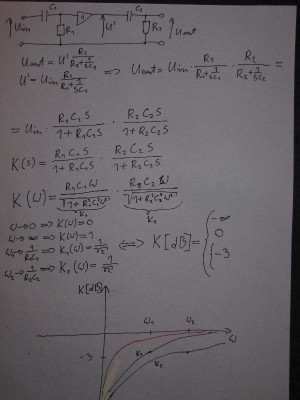 C₁ C₂
Uin R₁ U' R₂ Uout
Uout = U' R₂/(R₂+1/(SC₂))
U' = Uin R₁/(R₁+1/(SC₁)) => Uout = Uin · R₁/(R₁+1/(SC₁)) · R₂/(R₂+1/(SC₂)) =
= Uin · R₁C₁S/(1+R₁C₁S) · R₂C₂S/(1+R₂C₂S)
K(s) = R₁C₁S/(1+R₁C₁S) · R₂C₂S/(1+R₂C₂S)
K(ω) = R₁C₁ω/√(1+R₁²C₁²ω²) · R₂C₂ω/√(1+R₂²C₂²ω²)
K₁ K₂
ω→0 => K(ω)=0
ω→∞ => K(ω)=1
ω₁→1/(R₁C₁) => K₁(ω)=1/√2 <=> K[dB] = { -∞ 0 -3
ω₂→1/(R₂C₂) => K₂(ω)=1/√2
K[dB]
ω₁ ω₂ ω
-3 K₁ K₂